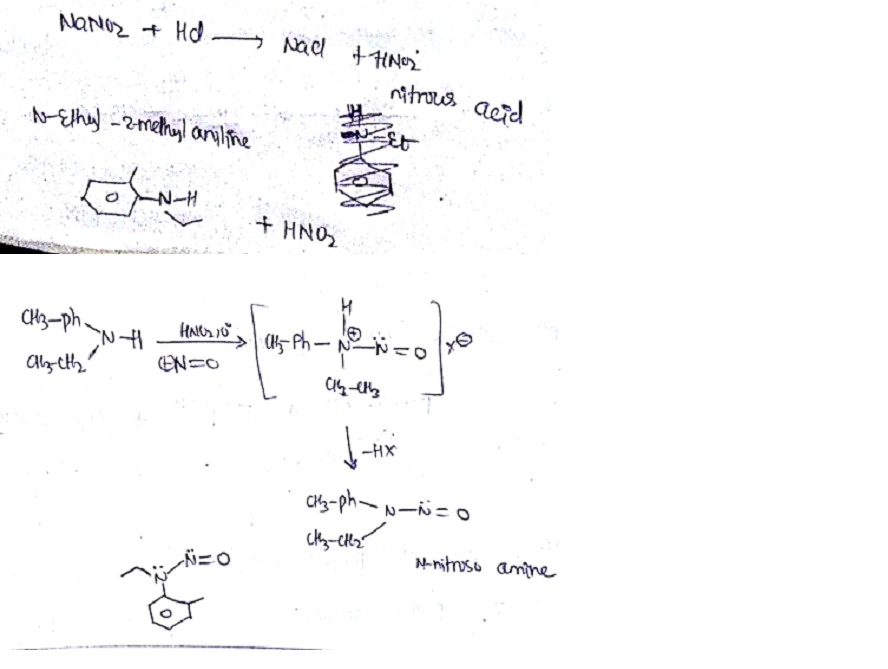 NaNO2 + HCl → NaCl + HNO2
nitrous acid
N-Ethyl-2-methyl aniline
N-H
+ HNO2
CH3-ph
N-H
CH3-CH2
HNO2, 0°
⊕N=O
H
CH3-Ph-N⊕-N̈=O
X⊖
CH2-CH3
-HX
CH3-ph
N-N̈=O
CH3-CH2
N-nitroso amine
N̈-N̈=O